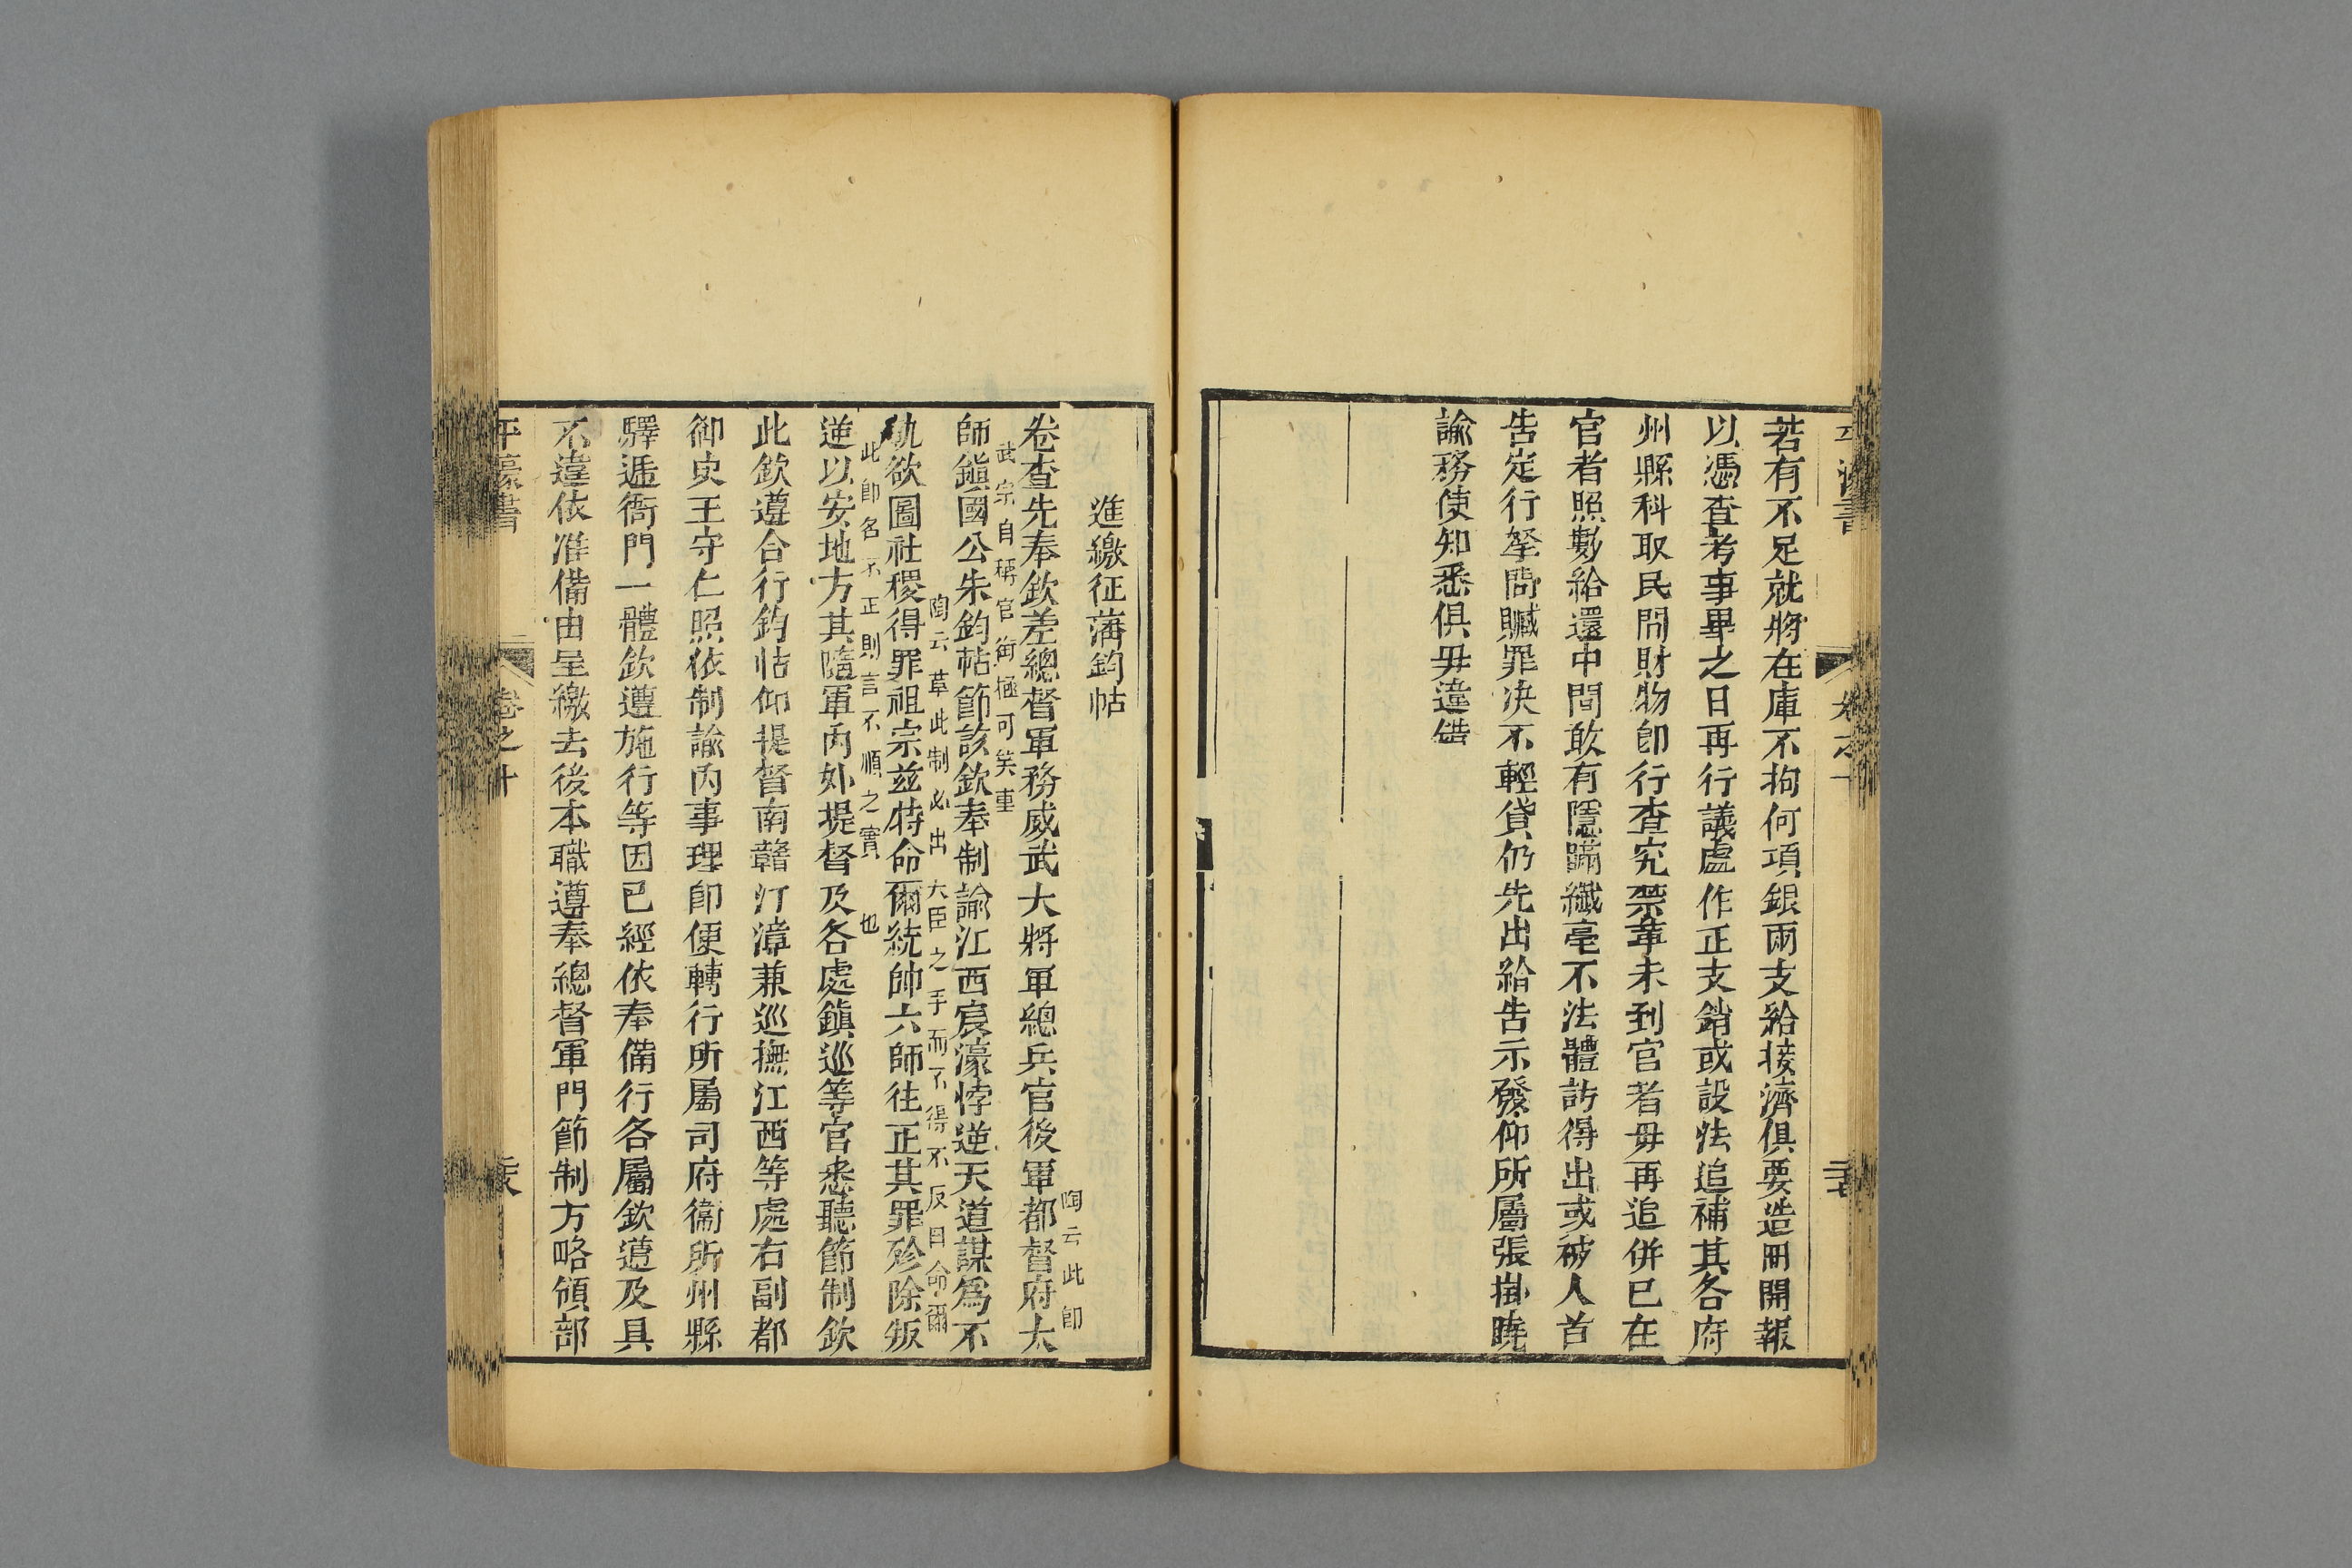 若有不足就將在庫不拘何項銀兩支給接濟俱要造冊開報
以憑查考事畢之日再行議處作正支銷或設法追補其各府
州縣科取民間財物卽行查究禁革未到官者毋再追併已在
官者照數給還中間敢有隱瞞纖毫不法體訪得出或被人首
告定行拏問贓罪决不輕貸仍先出給告示發仰所屬張掛曉
諭務使知悉俱毋違錯
進繳征藩鈞帖
陶云此卽
卷查先奉欽差總督軍務威武大將軍總兵官後軍都督府太
武宗自稱官銜極可笑重
師鎭國公朱鈞帖節該欽奉制諭江西宸濠悖逆天道謀爲不
陶云草此制必出大臣之手而不得不反目命爾
軌欲圖社稷得罪祖宗茲特命爾統帥六師往正其罪殄除叛
此卽名不正則言不順之實也
逆以安地方其隨軍內外提督及各處鎭巡等官悉聽節制欽
此欽遵合行鈞帖仰提督南贛汀漳兼巡撫江西等處右副都
御史王守仁照依制諭內事理卽便轉行所屬司府衞所州縣
驛遞衙門一體欽遵施行等因已經依奉備行各屬欽遵及具
不違依准備由呈繳去後本職遵奉總督軍門節制方略領部
平濠書 卷之十